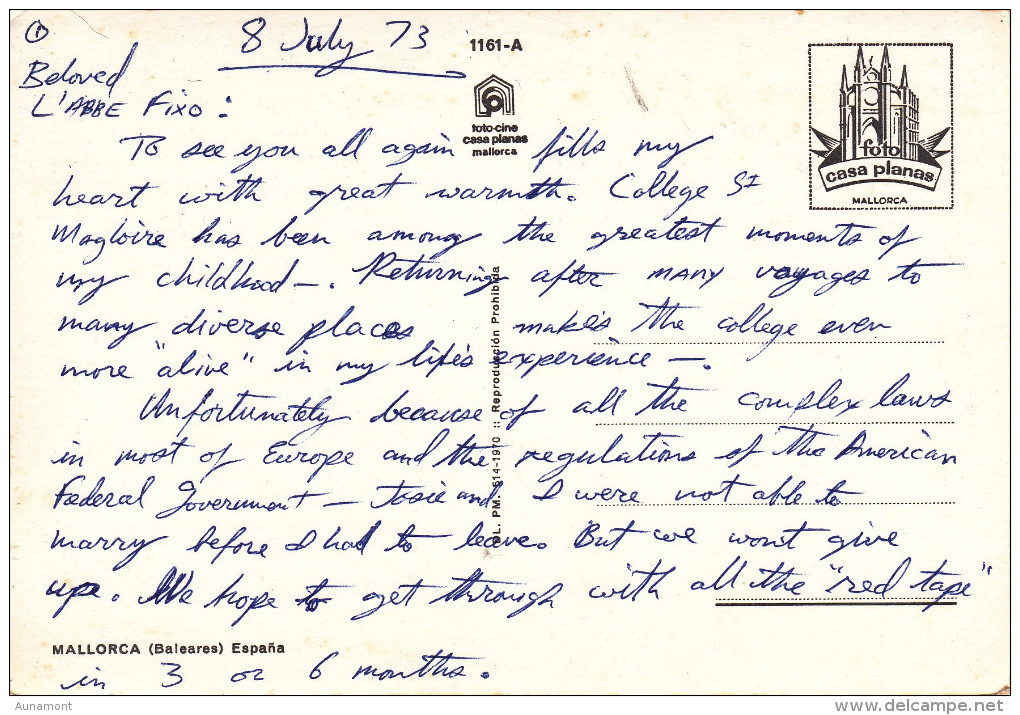 ①
8 July 73
1161-A
Beloved
L'ABBE Fixo :
foto-cine
casa planas
mallorca
foto
casa planas
MALLORCA
To see you all again fills my
heart with great warmth. College St
Magloire has been among the greatest moments of
my childhood —. Returning after many voyages to
many diverse places makes the college even
more "alive" in my life's experience —.
Unfortunately because of all the complex laws
in most of Europe and the regulations of the American
Federal Government — Josie and I were not able to
marry before I had to leave. But we won't give
up. We hope to get through with all the "red tape"
in 3 or 6 months.
DL. PM. 614-1970 :: Reproducción Prohibida
MALLORCA (Baleares) España
Aunamont
delcampe.net